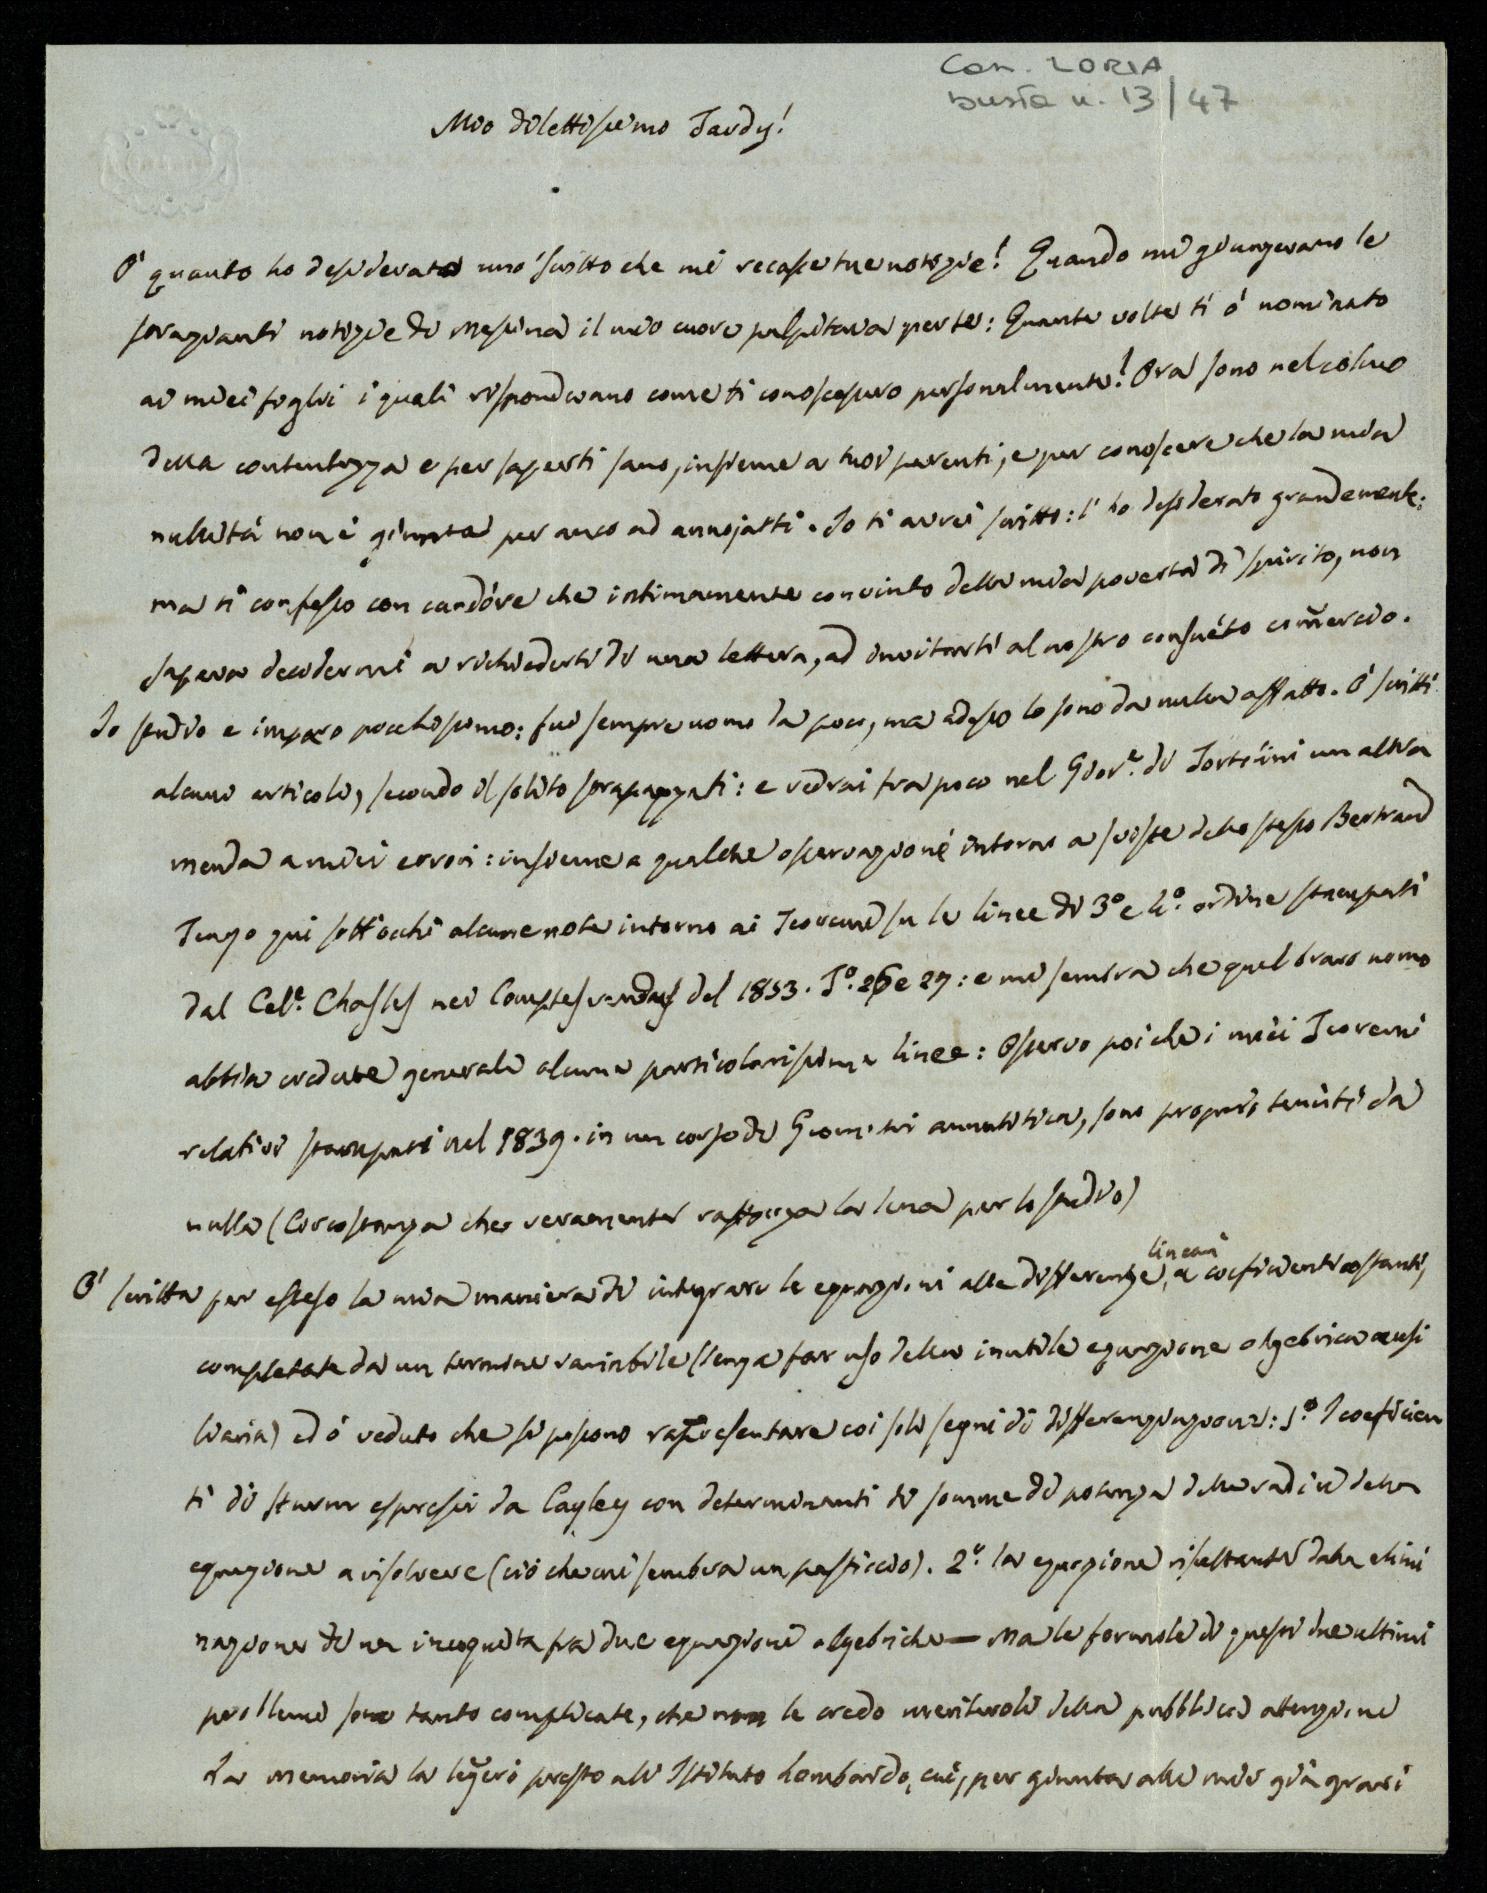 Con. LORIA
busta n. 13/47
Mio dilettissimo Tardy!
O' quanto ho desiderato uno scritto che mi recasse tue notizie! Quando mi giungevano le
strazianti notizie di Messina il mio cuore palpitava per te: Quante volte ti ó nominato
ai miei figlii i quali rispondevano come ti conoscessero personalmente! Ora sono nel colmo
della contentezza e per saperti sano, insieme a tuoi parenti, e per conoscere che la mia
nullità non è giunta per anco ad annojarti. Io ti avrei scritto: l'ho desiderato grandemente:
ma ti confesso con candóre che intimamente convinto della mia povertà di spirito, non
sapeva decidermi a richiederti di una lettera, ad invitarti al nostro consuéto com̃ercio.
Io studio e imparo pochissimo: fui sempre uomo da poco, ma adesso lo sono da nulla affatto. O' scritti
alcuni articoli, secondo il solito strapazzati: e vedrai fra poco nel Gior.e di Tortolini un altra
menda a miei errori: insieme a qualche osservazione intorno a sviste dello stesso Bertrand
Tengo quì sott'occhi alcune note intorno ai Teoremi su le linee di 3º e 4º. ordine stampati
dal Cel.e Chasles nei Comptes rendus del 1853. Tº. 26 e 27: e mi sembra che quel bravo uomo
abbia credute generali alcune particolarissime linee: Osservo poi che i miei Teoremi
relativi stampati nel 1839. in un corso di Geometri annalitica, sono proprio tenuti da
nulla (Circostanza che veramente rafforza la lena per lo studio)
O' scritta per esteso la mia maniera di integrare le equazioni alle differenze lineari, a coeficienti costanti,
completate da un termine variabile (senza far uso della inutile equazione algebrica ausi
liaria) ed ó veduto che si possono rapresentare coi soli segni di differenziazioni: 1.º I coeficien
ti di Sturm espressi da Cayley con determinanti di somme di potenza delle radici della
equazione a risolvere (ciò che mi sembra un pasticcio). 2.º la equazione risultante dalla elimi
nazione di un incognita fra due equazioni algebriche — Ma le formole di questi due ultimi
problemi sono tanto complicate, che non le credo meritevoli della pubblica attenzione
La memoria la leg̃erò presto all' Istituto Lombardo, cui, per giunta alle mie già gravi